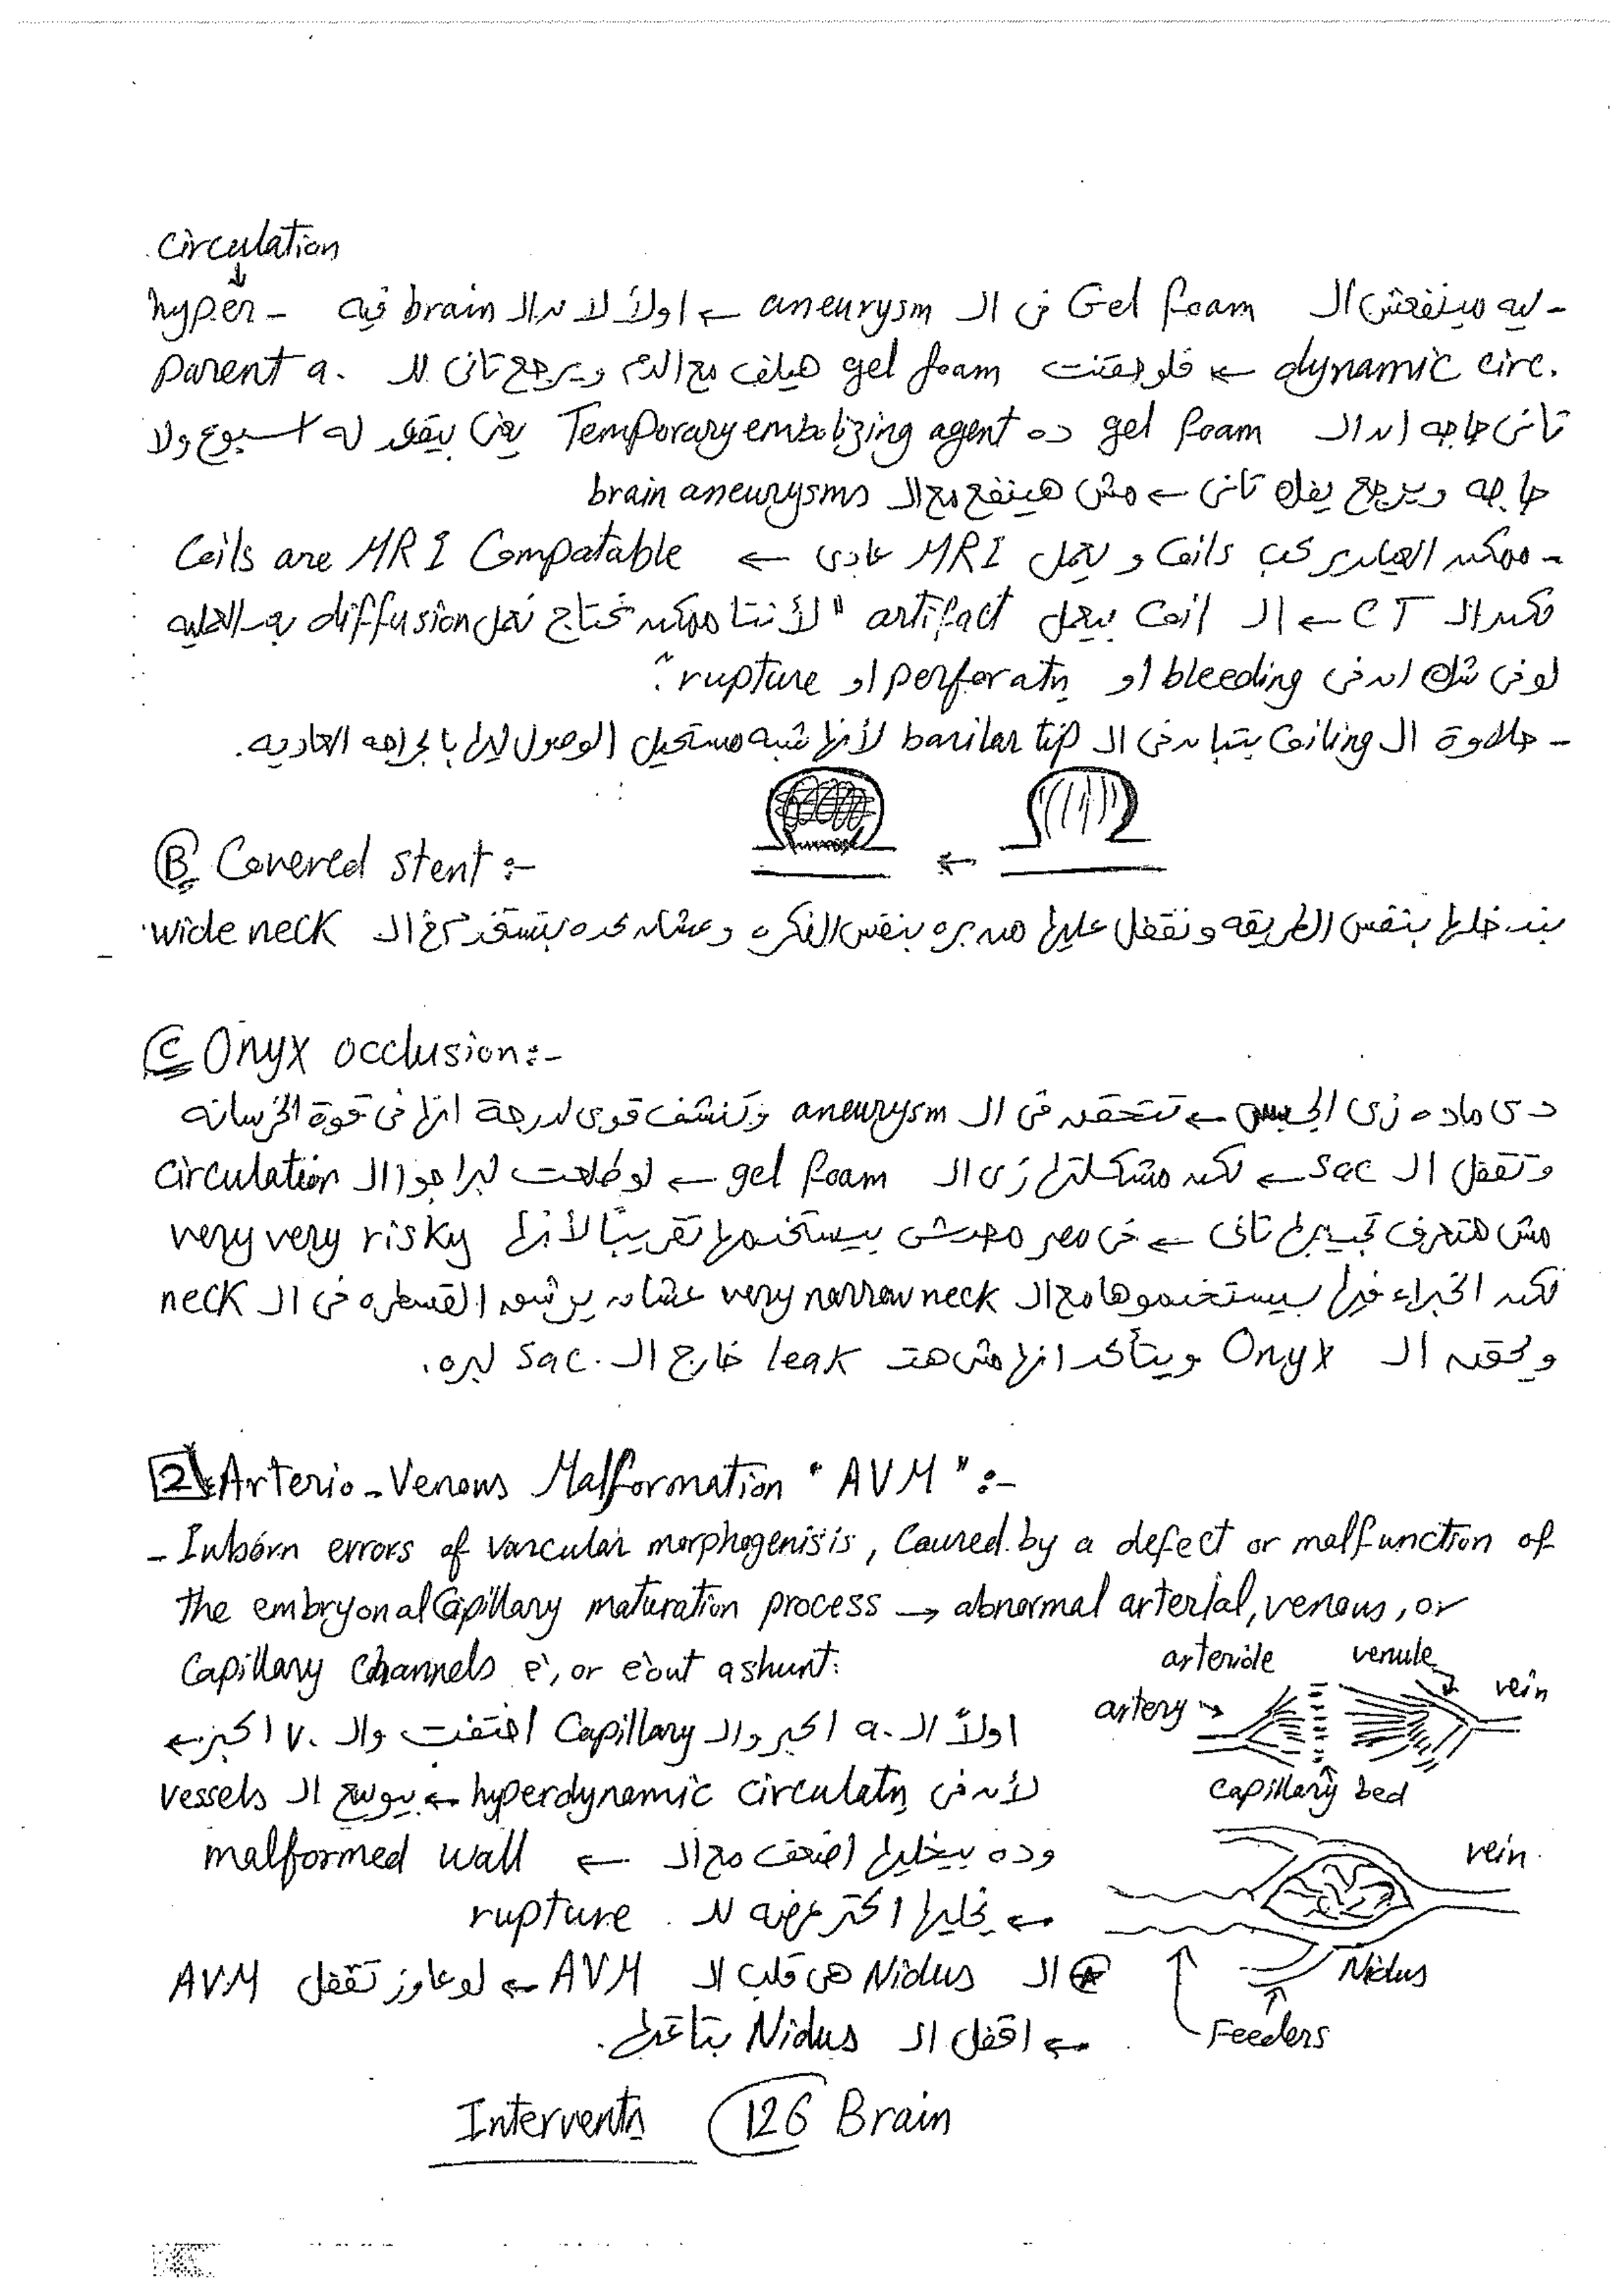 circulation
↓
- ليه مينفعش ال Gel foam في ال aneurysm ← اولاً لان ال brain فيه hyper-
dynamic circ. ← فلو حقنت gel foam هيلف مع الدم ويرجع تاني لل parent a.
تاني حاجه ان ال gel foam ده Temporary embolizing agent يعني بيقعد له اسبوع ولا
حاجه ويرجع يفك تاني ← مش هينفع مع ال brain aneurysms
- ممكن العيان يركب coils و يعمل MRI عادي ← Coils are MRI Compatable
لكن ال CT ← ال coil بيعمل artifact "لأننا ممكن نحتاج نعمل diffusion بعد العمليه
لو في شك ان في bleeding او perforatn او rupture".
- حلاوة ال coiling بتبان في ال basilar tip لأنها شبه مستحيل الوصول ليها بالجراحه العاديه.
Ⓑ Covered stent :-
بندخلها بنفس الطريقه ونقفل عليها من بره بنفس الفكره وعشان كده بتستخدم مع ال wide neck.
Ⓒ Onyx occlusion :-
دي ماده زي الجبس ← تتحقن في ال aneurysm وتنشف قوي لدرجة انها في قوة الخرسانه
وتقفل ال sac ← لكن مشكلتها زي ال gel foam ← لو طلعت لبرا جوا ال circulation
مش هتعرف تجيبها تاني ← في مصر محدش بيستخدمها تقريبًا لأنها very very risky
لكن الخبراء فيها بيستخدموها مع ال very narrow neck عشان يرشق القسطره في ال neck
ويحقن ال Onyx ويتأكد انها مش هت leak خارج ال sac لبره.
2 Arterio-Venous Malformation "AVM" :-
- Inborn errors of vascular morphogenisis, Caused by a defect or malfunction of
the embryonal Capillary maturation process → abnormal arterial, venous, or
Capillary Channels c̀, or c̀out a shunt:
arteriole venule
artery → vein
capillary bed
اولاً ال a. اكبر وال Capillary اختفت وال v. اكبر ←
لأن في hyperdynamic circulatn ← بيوسع ال vessels
وده بيخليها اضعف مع ال ← malformed wall
← يخليها اكتر عرضه لل rupture
ال Nidus هي قلب ال AVM ← لو عاوز تقفل AVM
← اقفل ال Nidus بتاعتها.
vein
Nidus
Feeders
Interventn 126 Brain